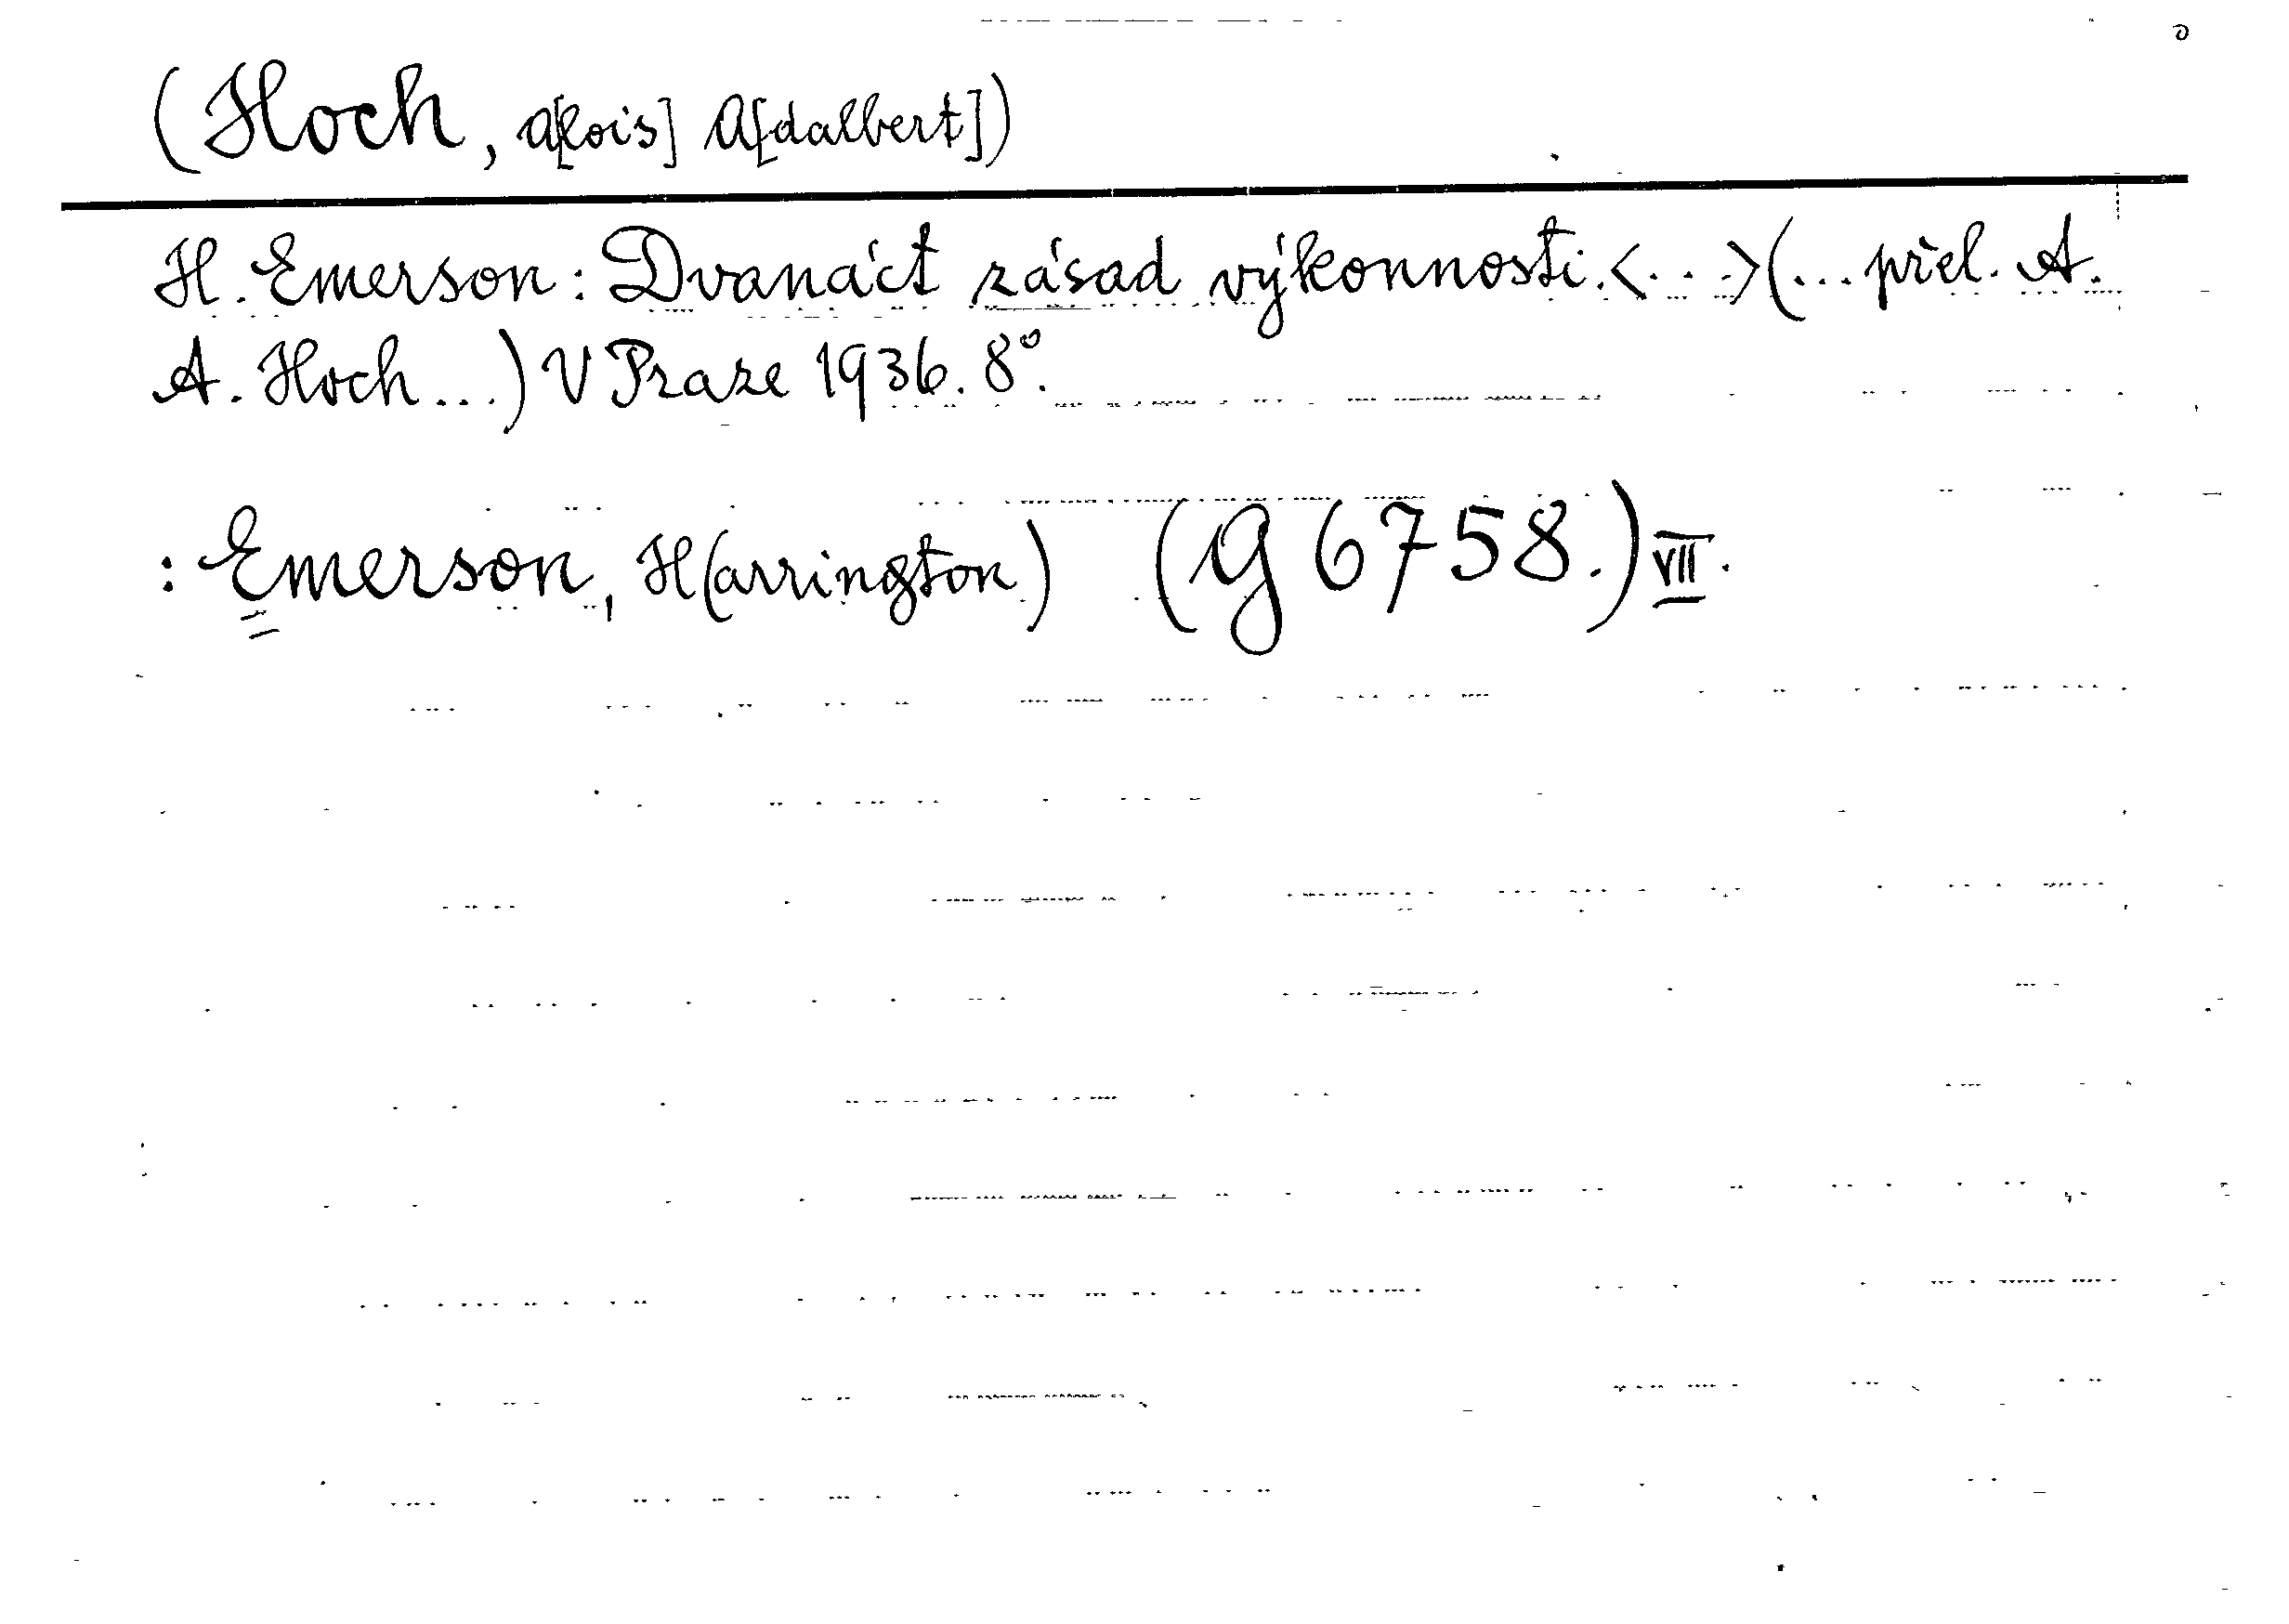 (Hoch, A[lois] A[dalbert])
H. Emerson: Dvanáct zásad výkonnosti. <...> (... přel. A.
A. Hoch...) V Praze 1936. 8°.
: Emerson, H(arrington) (G 6758.) VII.